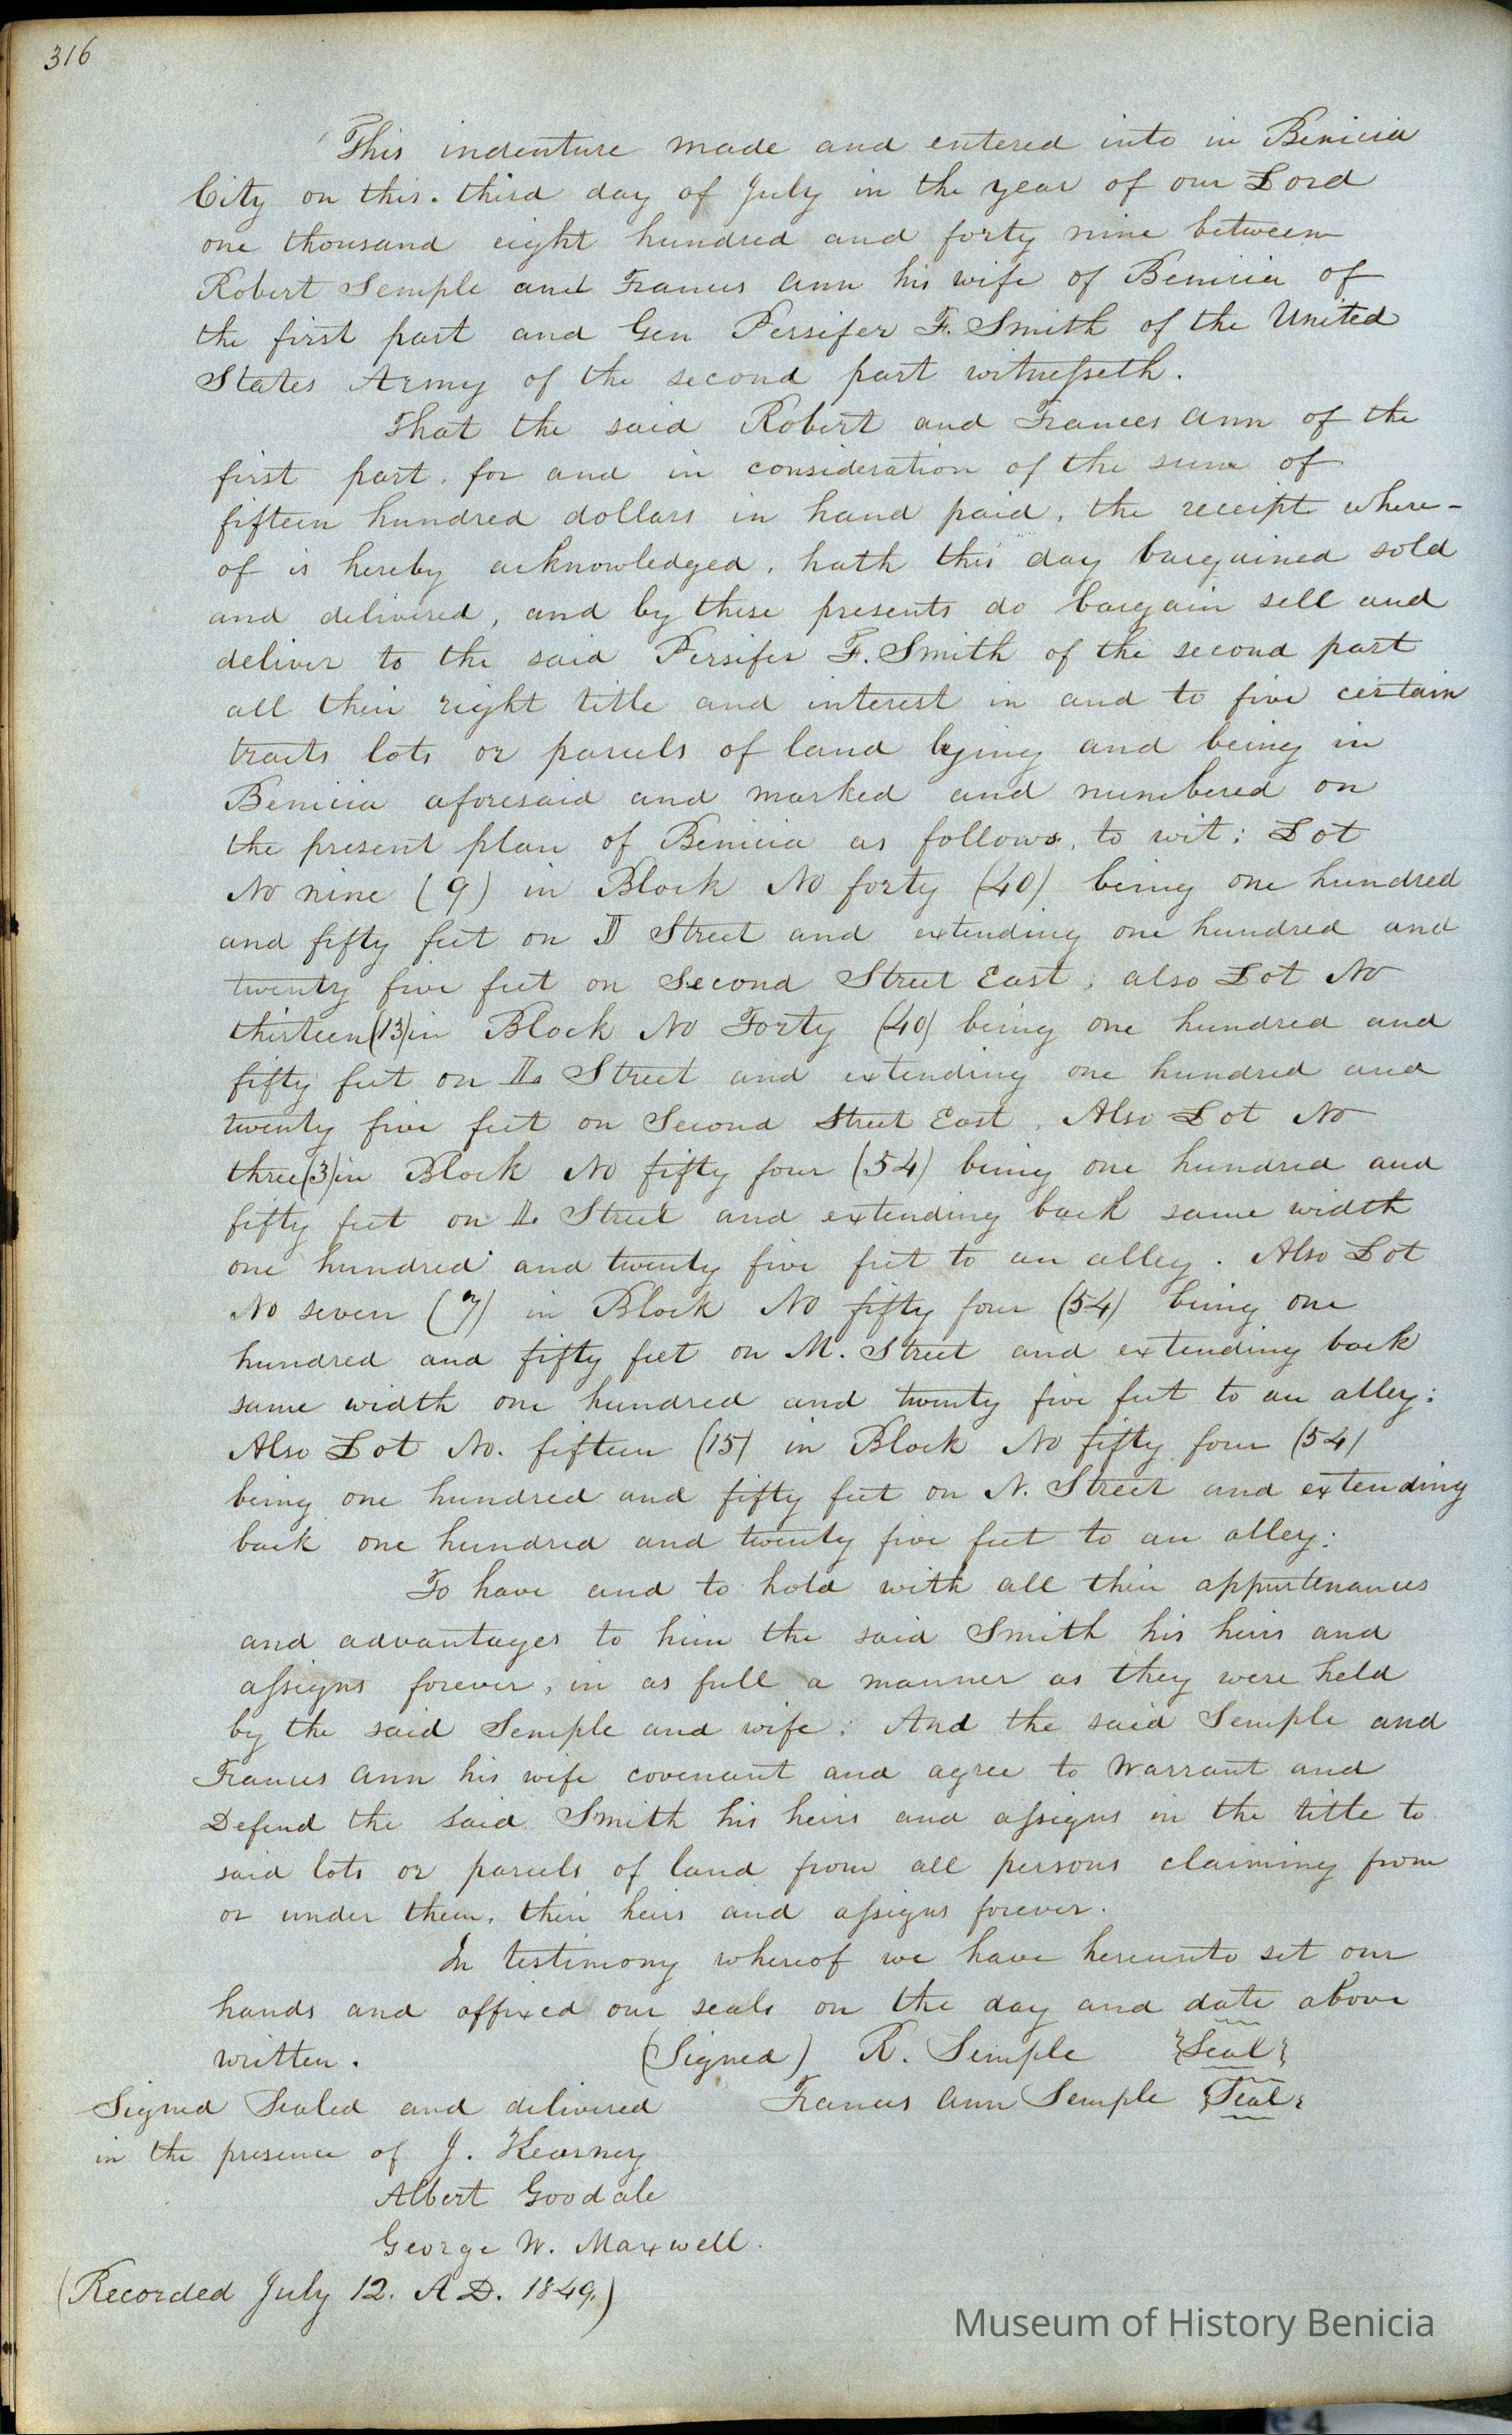 316
This indenture made and entered into in Benicia
City on this third day of July in the year of our Lord
one thousand eight hundred and forty nine between
Robert Semple and Frances Ann his wife of Benicia of
the first part and Gen Persifer F. Smith of the United
States Army of the second part witnesseth.
That the said Robert and Frances Ann of the
first part, for and in consideration of the sum of
fifteen hundred dollars in hand paid, the receipt where-
of is hereby acknowledged, hath this day bargained sold
and delivered, and by these presents do bargain sell and
deliver to the said Persifer F. Smith of the second part
all their right title and interest in and to five certain
tracts lots or parcels of land lying and being in
Benicia aforesaid and marked and numbered on
the present plan of Benicia as follows, to wit: Lot
No nine (9) in Block No forty (40) being one hundred
and fifty feet on Street and extending one hundred and
twenty five feet on Second Street East; also Lot No
thirteen (13) in Block No Forty (40) being one hundred and
fifty feet on Street and extending one hundred and
twenty five feet on Second Street East. Also Lot No
three (3) in Block No fifty four (54) being one hundred and
fifty feet on Street and extending back same width
one hundred and twenty five feet to an alley. Also Lot
No seven (7) in Block No fifty four (54) being one
hundred and fifty feet on M. Street and extending back
same width one hundred and twenty five feet to an alley:
Also Lot No. fifteen (15) in Block No fifty four (54)
being one hundred and fifty feet on N. Street and extending
back one hundred and twenty five feet to an alley:
To have and to hold with all their appurtenances
and advantages to him the said Smith his heirs and
assigns forever, in as full a manner as they were held
by the said Semple and wife: And the said Semple and
Frances Ann his wife covenant and agree to Warrant and
Defend the said Smith his heirs and assigns in the title to
said lots or parcels of land from all persons claiming from
or under them, their heirs and assigns forever.
In testimony whereof we have hereunto set our
hands and affixed our seals on the day and date above
written. (Signed) R. Semple {Seal}
Signed Sealed and delivered Frances Ann Semple {Seal}
in the presence of J. Kearney
Albert Goodale
George W. Maxwell.
(Recorded July 12. A.D. 1849.)
Museum of History Benicia